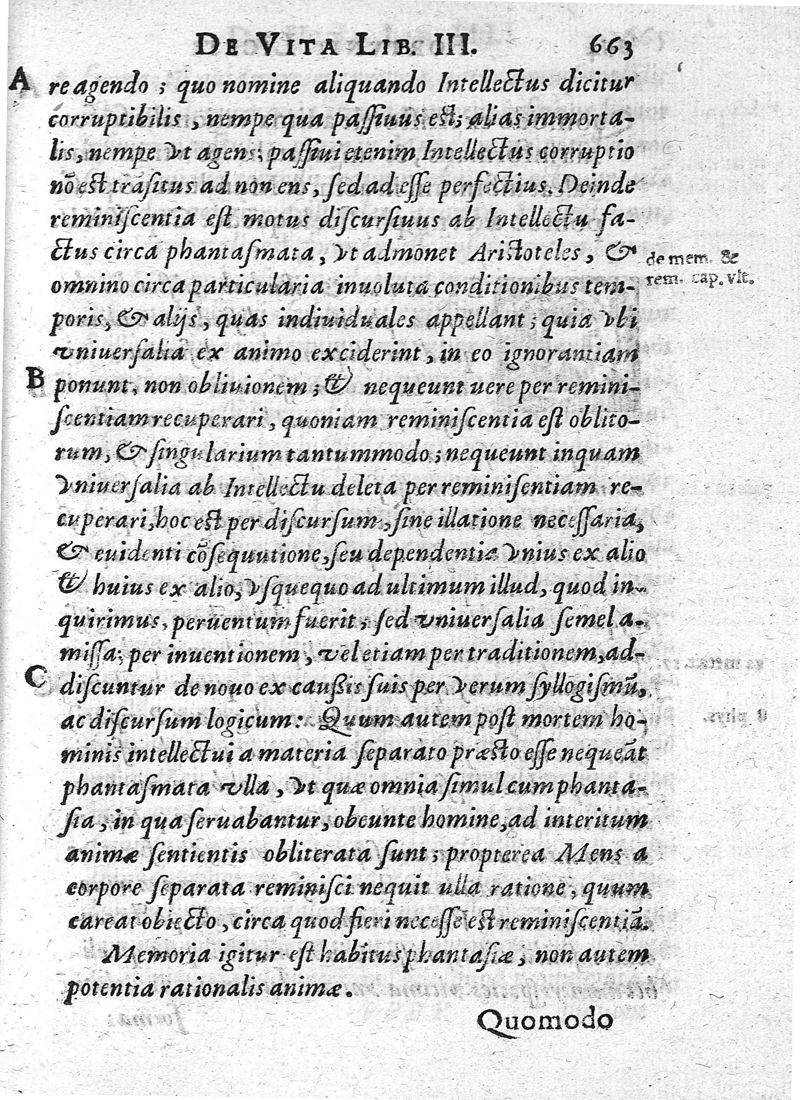 DE VITA LIB. III. 663
A re agendo ; quo nomine aliquando Intellectus dicitur
corruptibilis , nempe qua paſſiuus eſt; alias immorta-
lis, nempe vt agens; paſſiui etenim Intellectus corruptio
nõ eſt trãſitus ad non ens, ſed ad eſſe perfectius. Deinde
reminiſcentia eſt motus diſcurſiuus ab Intellectu fa-
ctus circa phantaſmata , vt admonet Ariſtoteles, &
de mem. &
omnino circa particularia inuoluta conditionibus tem-
rem. cap. vlt.
poris, & alijs, quas indiuiduales appellant; quia vbi
vniuerſalia ex animo exciderint, in eo ignorantiam
B ponunt, non obliuionem ; & nequeunt uere per remini-
ſcentiam recuperari, quoniam reminiſcentia eſt oblito-
rum, & ſingularium tantummodo; nequeunt inquam
vniuerſalia ab Intellectu deleta per reminiſentiam re-
cuperari, hoc eſt per diſcurſum, ſine illatione neceſſaria,
& euidenti cõſequutione, ſeu dependentia vnius ex alio
& huius ex alio, vſquequo ad ultimum illud, quod in-
quirimus, peruentum fuerit; ſed vniuerſalia ſemel a-
miſſa; per inuentionem, vel etiam per traditionem, ad-
C diſcuntur de nouo ex caußis ſuis per verum ſyllogiſmũ,
ac diſcurſum logicum: Quum autem poſt mortem ho-
minis intellectui a materia ſeparato præſto eſſe nequeãt
phantaſmata vlla , vt quæ omnia ſimul cum phanta-
ſia, in qua ſeruabantur, obeunte homine, ad interitum
animæ ſentientis obliterata ſunt; propterea Mens a
corpore ſeparata reminiſci nequit ulla ratione, quum
careat obiecto , circa quod fieri neceſſe eſt reminiſcentiã.
Memoria igitur eſt habitus phantaſiæ , non autem
potentia rationalis animæ.
Quomodo